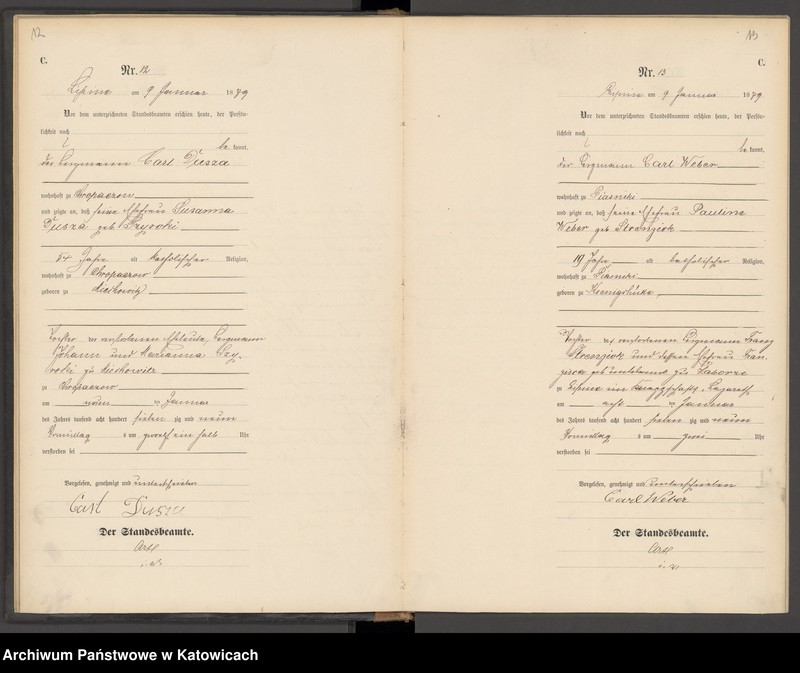 12
C.
Nr. 12
Lipine am 9 Januar 1879
Vor dem unterzeichneten Standesbeamten erschien heute, der Persön-
lichkeit nach
be kannt,
der Bergmann Carl Dusza
wohnhaft zu Chropaczow
und zeigte an, daß seine Ehefrau Susanna
Dusza geb
54 Jahre alt katholischer Religion,
wohnhaft zu Chropaczow
geboren zu Miechowitz
Tochter der verstorbenen Eheleute, Bergmann
Johann und Marianna
zu Miechowitz
zu Chropaczow
am neun ten Januar
des Jahres tausend acht hundert sieben zig und neun
Vormittag s um zwölf ein halb Uhr
verstorben sei
Vorgelesen, genehmigt und unterschrieben
Carl Dusza
Der Standesbeamte.
i. V.
13
C.
Nr. 13
Lipine am 9 Januar 1879
Vor dem unterzeichneten Standesbeamten erschien heute, der Persön-
lichkeit nach
be kannt,
der Bergmann Carl Weber
wohnhaft zu Piasniki
und zeigte an, daß seine Ehefrau Pauline
Weber geb
19 Jahre alt katholischer Religion,
wohnhaft zu Piasniki
geboren zu Koenigshütte
Tochter des verstorbenen Bergmann Franz
und dessen Ehefrau Fran-
zisca geb unbekannt zu Zaborze
zu Lipine im Knappschafts Lazareth
am acht ten Januar
des Jahres tausend acht hundert sieben zig und neun
Vormittag s um zwei Uhr
verstorben sei
Vorgelesen, genehmigt und unterschrieben
Carl Weber
Der Standesbeamte.
i. V.
Archiwum Państwowe w Katowicach